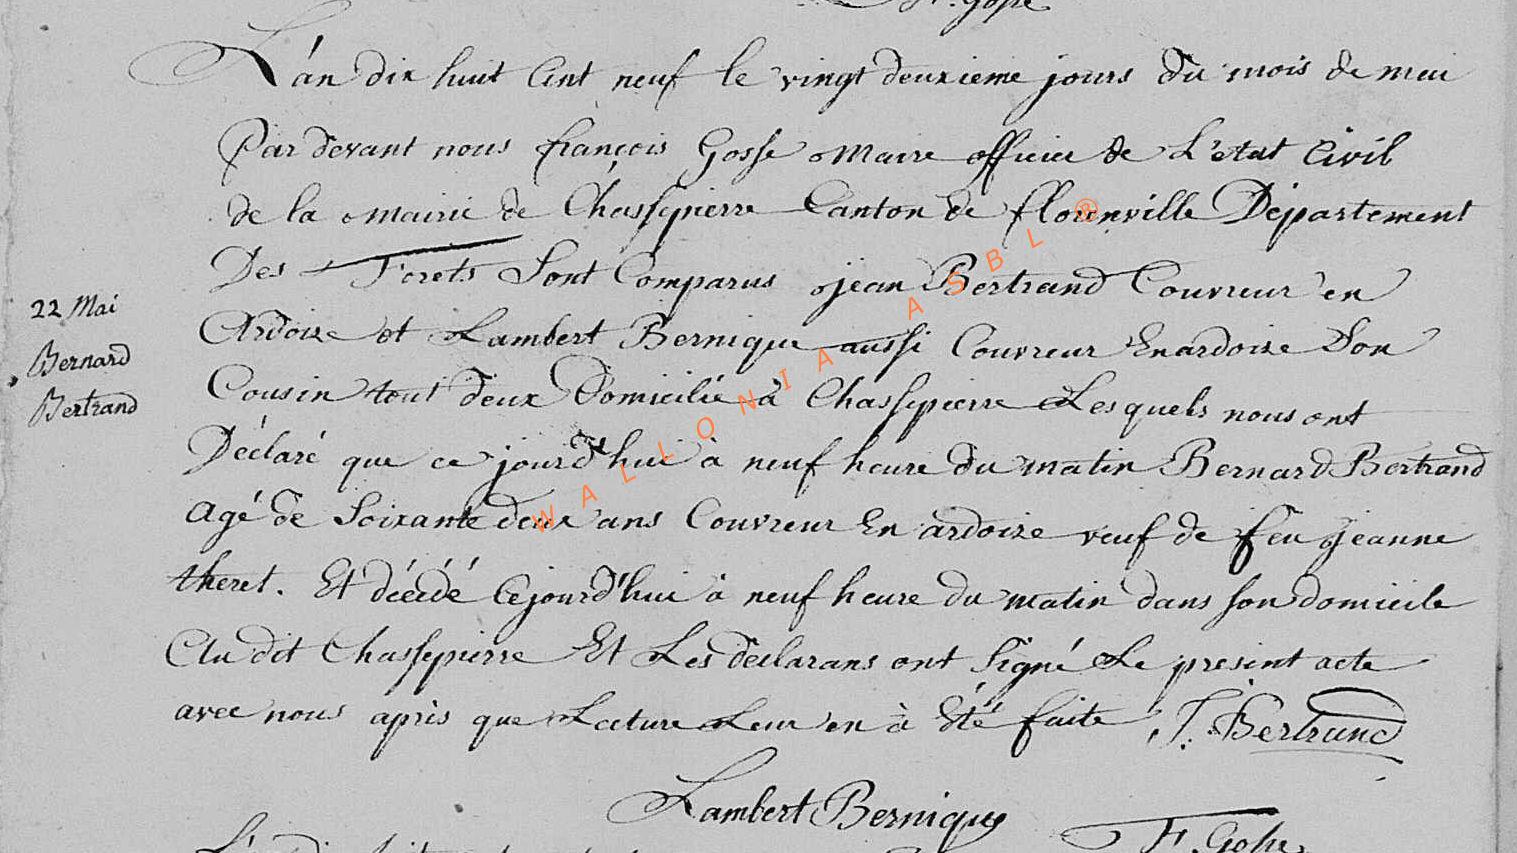 F. Gosse
L'an dix huit Cent neuf le vingt deuxieme jours du mois de mai
Par devant nous françois Gosse Maire officier de L'etat Civil
de la Mairie de Chassepierre Canton de florenville Département
Des Forets Sont Comparus jean Bertrand Couvreur en
22 Mai
Ardoise et Lambert Bernique aussi Couvreur En ardoise Son
Bernard
Cousin tout deux Domicilié à Chassepierre Lesquels nous ont
Bertrand
Déclaré que ce jourd'hui à neuf heure du matin Bernard Bertrand
agé de Soixante deux ans Couvreur En ardoise veuf de feu jeanne
theret. Et décédé Cejourd'hui à neuf heure du matin dans son domicile
Au dit Chassepierre Et Les declarans ont Signé Le present acte
avec nous après que Lecture Leur en à Eté faite J. Bertrand
Lambert Bernique
F. Gosse
WALLONIA ASBL ®